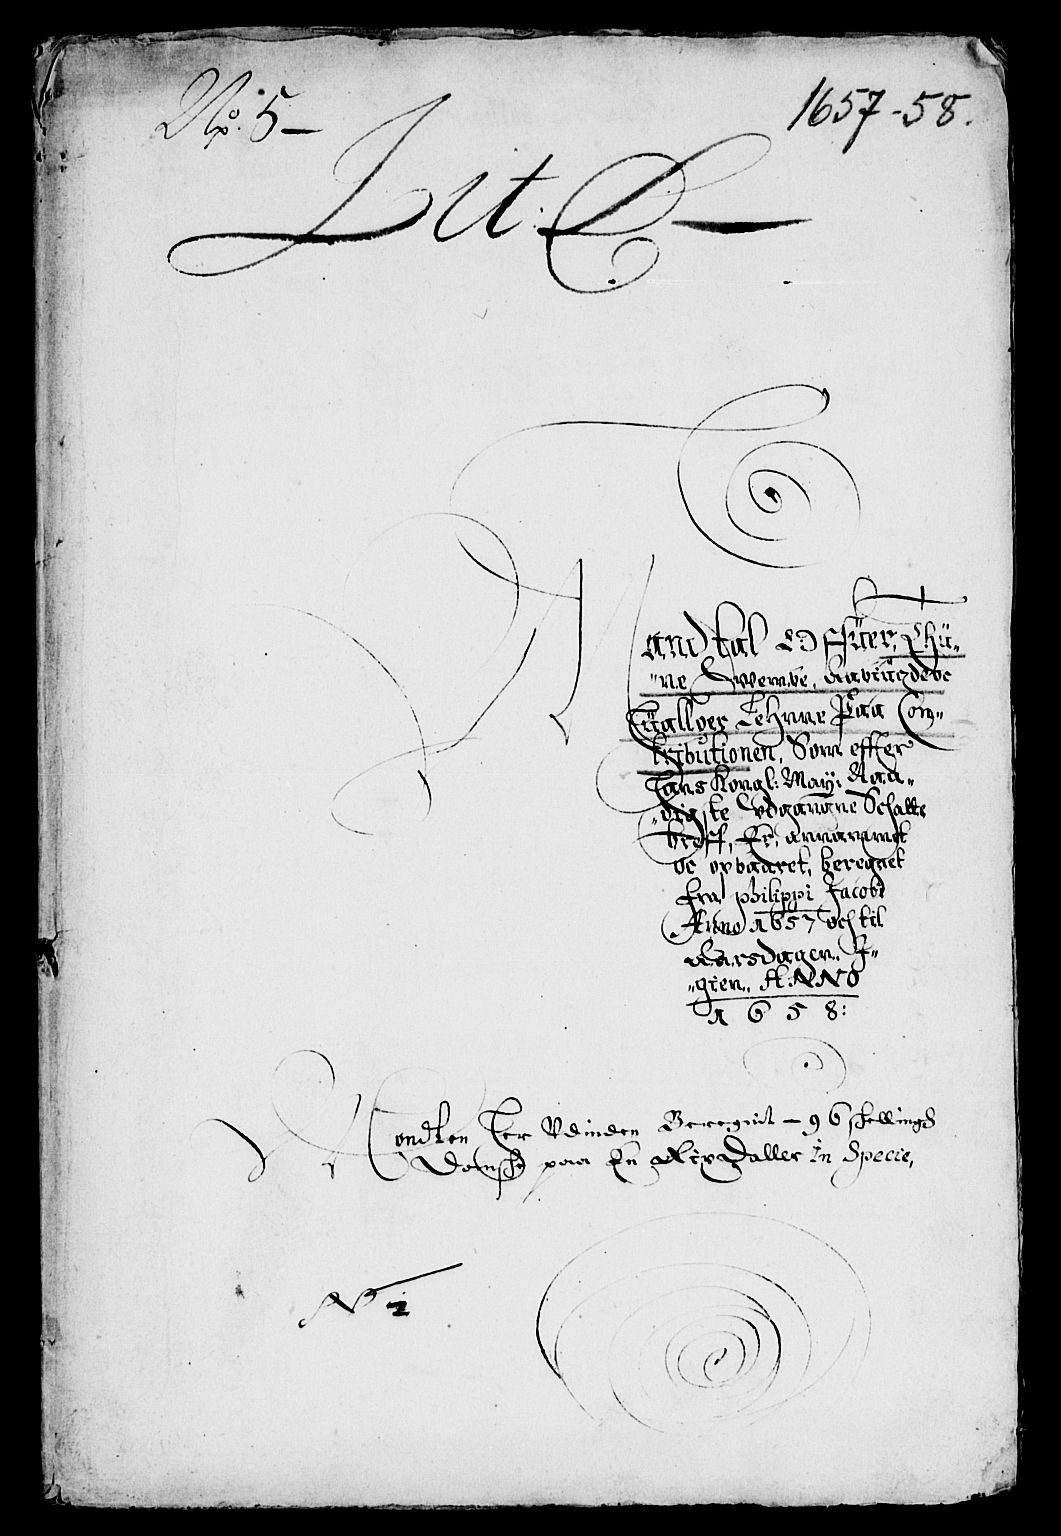 No. 5 –
1657-58.
Lit: D –
Mandtal Offuer, Thü-
ne
Lehnne Paa Con-
tributionen, Som effter
Hans Kongl: May: Naa-
digste Vdgangne Schatte
breff, Er, annammet
oc opbaaret, beregnet
fra philippi Jacobi
Anno 1657 och til
Aarsdagen, I-
gien, ANNO
1658:
Mondten Her Vdinden Beregnit – 96 skellingh
Donsche paa En Rixdaller In Specie,
N 2